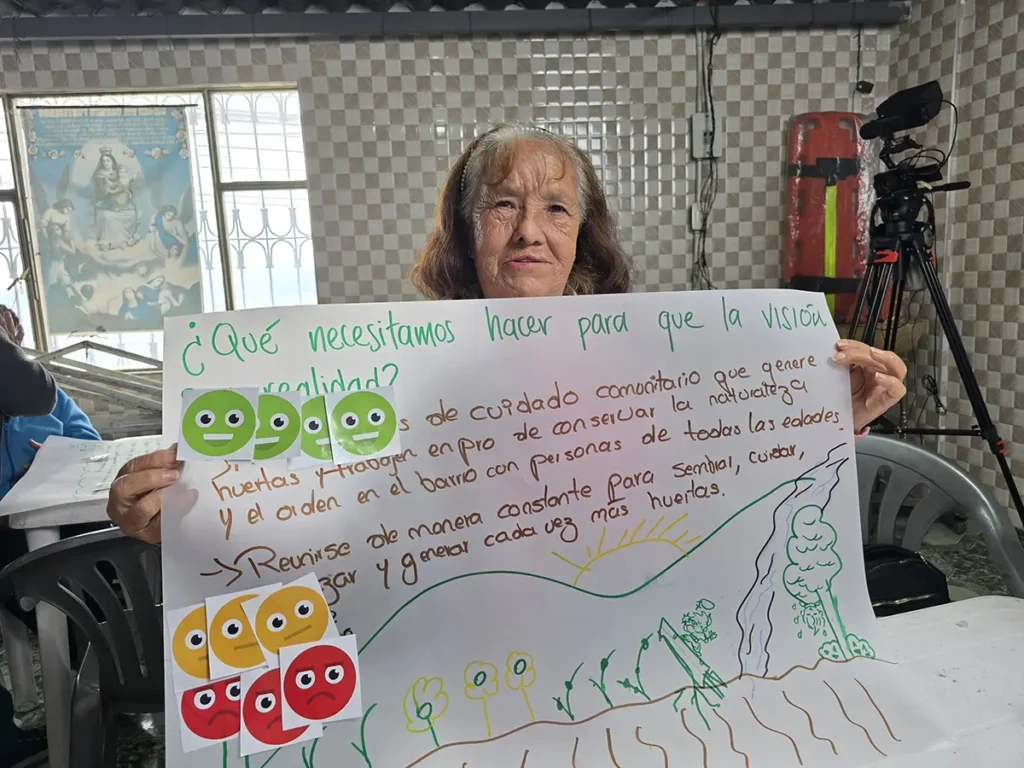 ¿Qué necesitamos hacer para que la visión
realidad?
s de cuidado comunitario que genere
huertas y trabajen en pro de conservar la naturaleza
y el orden en el barrio con personas de todas las edades
→ Reunirse de manera constante para sembrar, cuidar,
gar y generar cada vez más huertas.